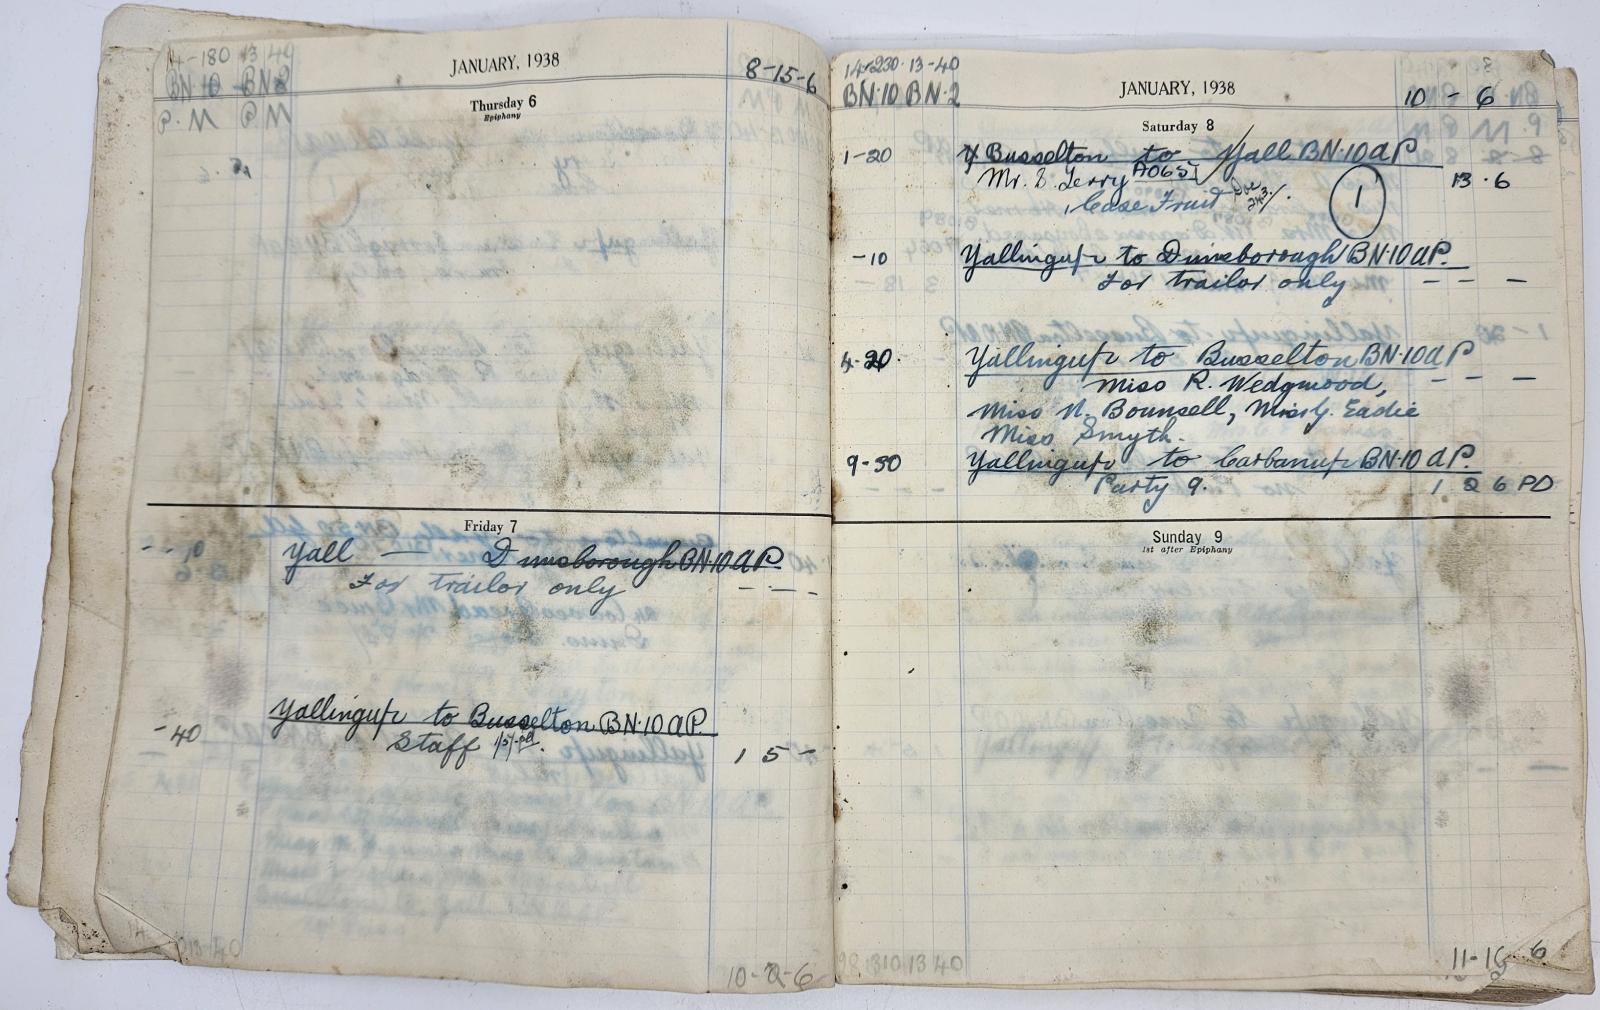 14-180 13 40
BN·10 BN·2
JANUARY, 1938
8-15-6
Thursday 6
Epiphany
Friday 7
- - 10
Yall — Dunsborough BN·10 a P.
For trailor only
- - -
Yallingup to Busselton BN·10 a P.
-40
Staff
1 5 -
10-2-6
14-230·13-40
BN·10 BN·2
JANUARY, 1938
10 - 6
Saturday 8
1-20
Busselton to Yall BN·10 a P
Mr. Terry A0651
13·6
1 Case Fruit
1
-10
Yallingup to Dunsborough BN·10 a P.
For trailor only
- - -
4-20·
Yallingup to Busselton BN·10 a P
Miss R. Wedgwood,
- - -
Miss N. Bounsell, Miss G. Eadie
Miss Smyth.
9-30
Yallingup to Carbanup BN·10 a P.
Party 9.
1 2 6 PD
Sunday 9
1st after Epiphany
1310 13 40